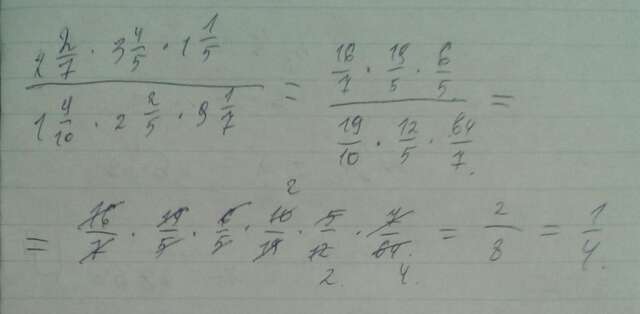 2 2/7 · 3 4/5 · 1 1/5 / 1 9/10 · 2 2/5 · 9 1/7 = 16/7 · 19/5 · 6/5 / 19/10 · 12/5 · 64/7 =
= 16/7 · 19/5 · 6/5 · 10/19 · 5/12 · 7/64 = 2/8 = 1/4
2
2. 4.